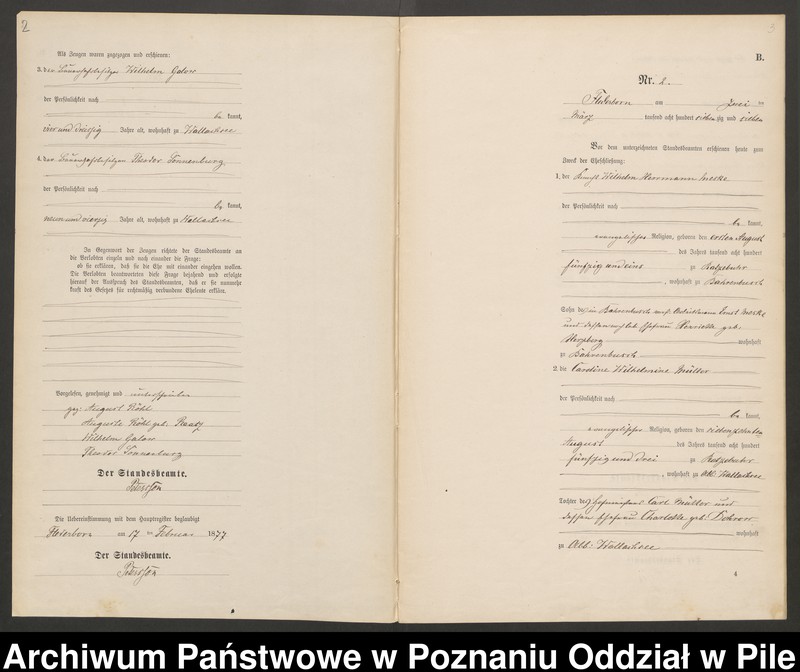 2
Als Zeugen waren zugezogen und erschienen:
3. der Bauernhofsbesitzer Wilhelm Galow
der Persönlichkeit nach
be kannt,
vier und dreißig Jahre alt, wohnhaft zu Wallachsee
4. der Bauernhofsbesitzer Theodor Sonnenburg,
der Persönlichkeit nach
be kannt,
vierzig Jahre alt, wohnhaft zu Wallachsee
In Gegenwart der Zeugen richtete der Standesbeamte an
die Verlobten einzeln und nach einander die Frage:
ob sie erklären, daß sie die Ehe mit einander eingehen wollen.
Die Verlobten beantworteten diese Frage bejahend und erfolgte
hierauf der Ausspruch des Standesbeamten, daß er sie nunmehr
kraft des Gesetzes für rechtmäßig verbundene Eheleute erkläre.
Vorgelesen, genehmigt und unterschrieben
gez. August Röhl
Auguste Röhl geb. Raatz
Wilhelm Galow
Theodor Sonnenburg
Der Standesbeamte.
Petersson
Die Uebereinstimmung mit dem Hauptregister beglaubigt
Flederborn am 17 ten Februar 1877
Der Standesbeamte.
Petersson
3
B.
Nr. 2.
Flederborn am zwei ten
März tausend acht hundert sieben zig und sieben
Vor dem unterzeichneten Standesbeamten erschienen heute zum
Zweck der Eheschließung:
1. der Knecht Wilhelm Herrmann Meske
der Persönlichkeit nach
be kannt,
evangelischer Religion, geboren den ersten August
des Jahres tausend acht hundert
fünfzig und eins zu Ratzebuhr
, wohnhaft zu Bahrenbusch
Sohn des in Bahrenbusch Ernst Meske
und dessen Ehefrau Henriette geb.
Herzberg wohnhaft
zu Bahrenbusch
2. die Caroline Wilhelmine Müller
der Persönlichkeit nach
be kannt,
evangelischer Religion, geboren den siebenzehnten
August des Jahres tausend acht hundert
fünfzig und drei zu Ratzebuhr
, wohnhaft zu Alt Wallachsee
Tochter des Carl Müller und
dessen Ehefrau Charlotte geb.
wohnhaft
zu Alt-Wallachsee
4
Archiwum Państwowe w Poznaniu Oddział w Pile